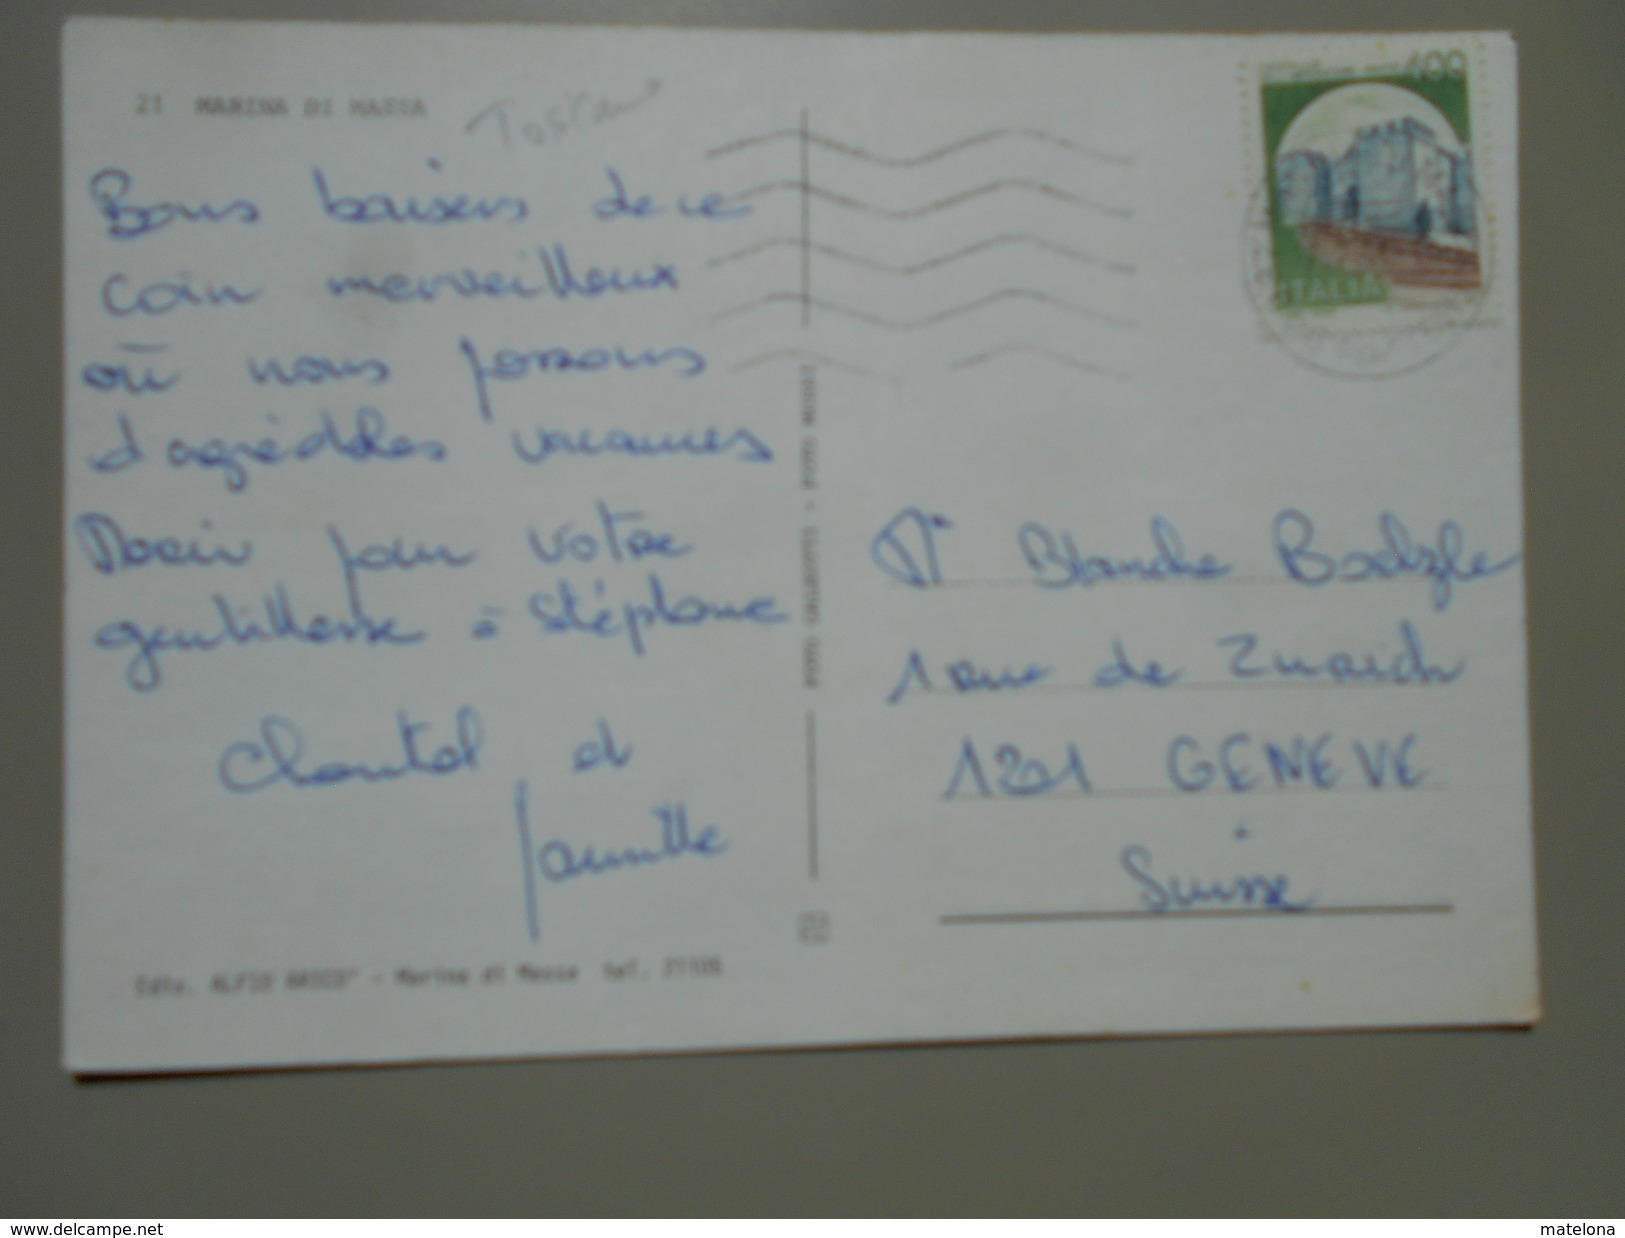 21 MARINA DI MASSA
Toscana
Bons baisers de ce
coin merveilleux
où nous passons
d'agréables vacances
Merci pour votre
gentillesse à Stéphane
Chantal et
famille
Edit. ALFIO - Marina di Massa tel.
400
ITALIA
Blanche
1 rue de Zurich
1201 GENEVE
Suisse
www.delcampe.net
matelona